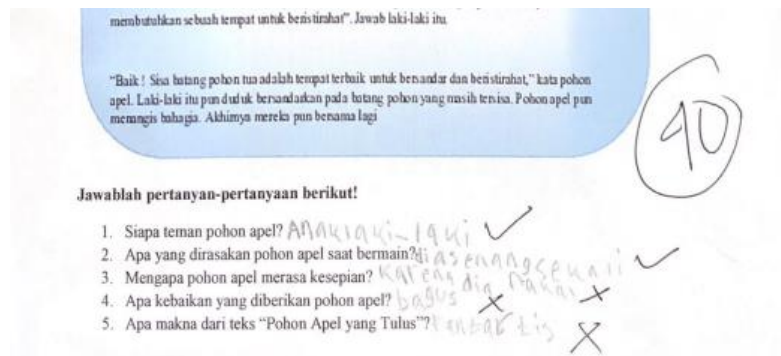 membutuhkan sebuah tempat untuk beristirahat”. Jawab laki-laki itu.
“Baik ! Sisa batang pohon tua adalah tempat terbaik untuk bersandar dan beristirahat,” kata pohon
apel. Laki-laki itu pun duduk bersandarkan pada batang pohon yang masih tersisa. Pohon apel pun
menangis bahagia. Akhirnya mereka pun bersama lagi
40
Jawablah pertanyan-pertanyaan berikut!
1. Siapa teman pohon apel? Anak laki-laki
2. Apa yang dirasakan pohon apel saat bermain? dia senang sekali
3. Mengapa pohon apel merasa kesepian? Karena dia
4. Apa kebaikan yang diberikan pohon apel? bagus
5. Apa makna dari teks “Pohon Apel yang Tulus”?